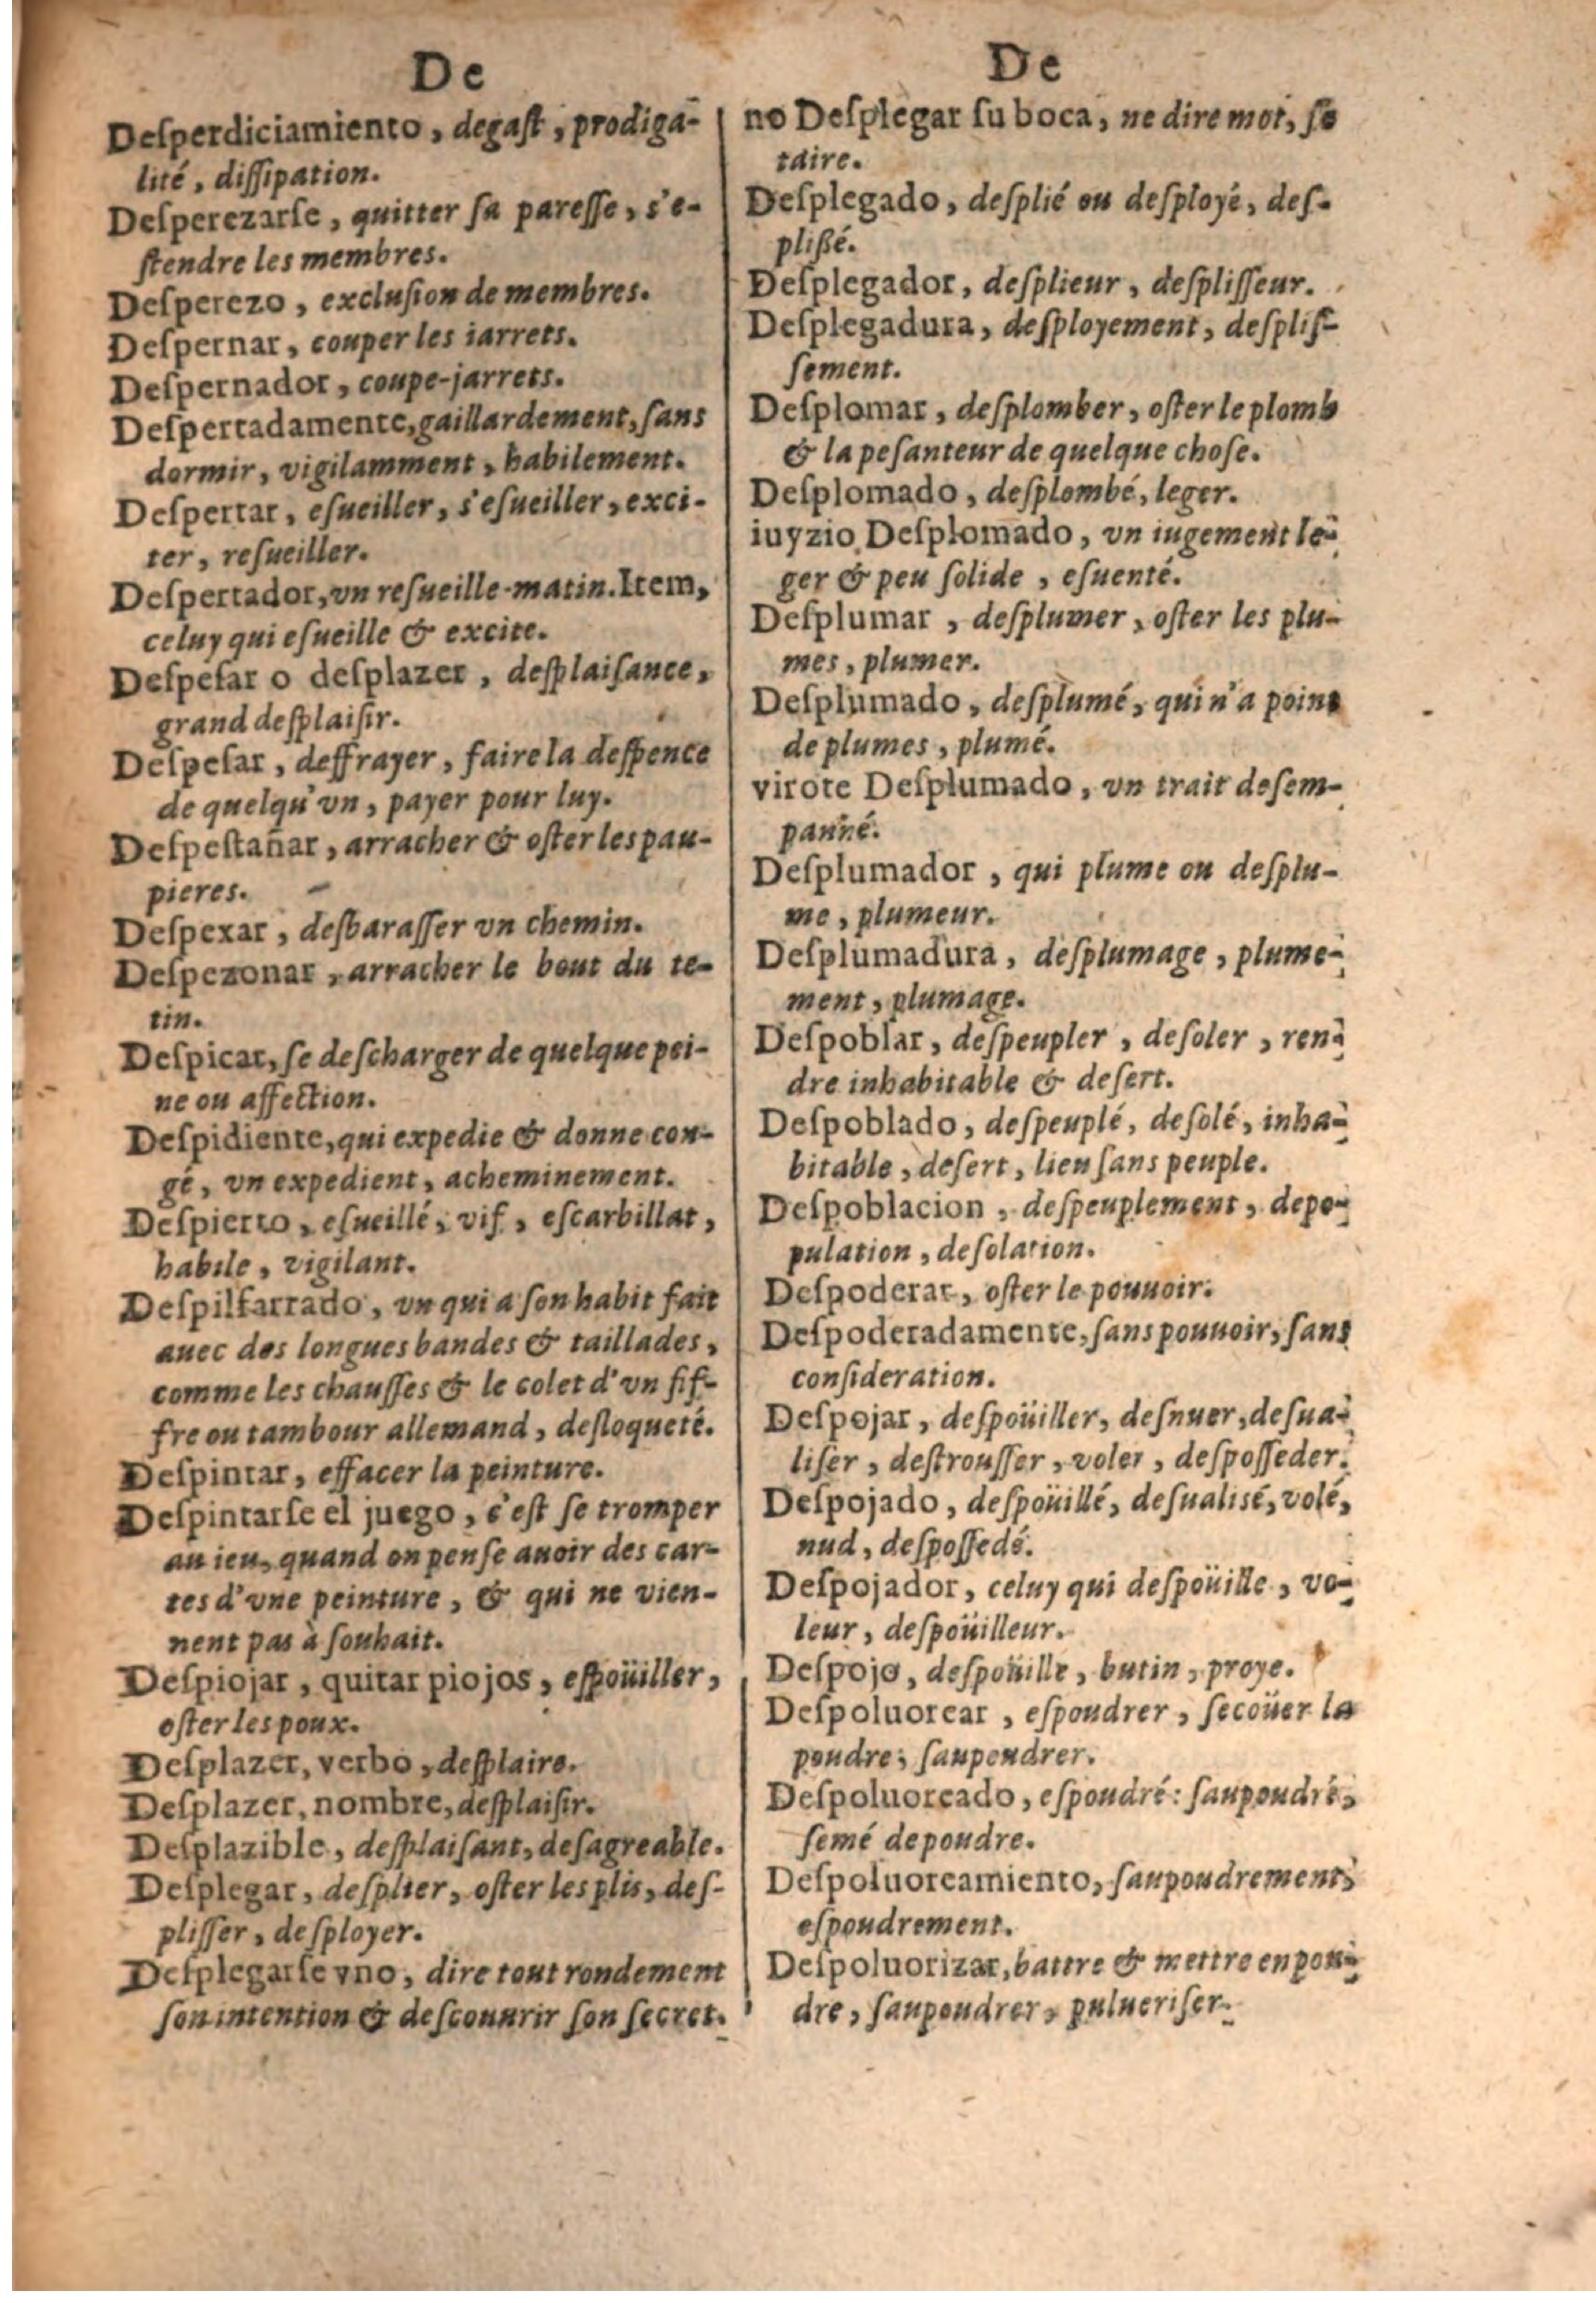 De
Deſperdiciamiento, degaſt, prodiga-
lité, diſſipation.
Deſperezarſe, quitter ſa pareſſe, s'e-
ſtendre les membres.
Deſperezo, excluſion de membres.
Deſpernar, couper les iarrets.
Deſpernador, coupe-jarrets.
Deſpertadamente, gaillardement, ſans
dormir, vigilamment, habilement.
Deſpertar, eſueiller, s'eſueiller, exci-
ter, reſueiller.
Deſpertador, vn reſueille-matin. Item,
celuy qui eſueille & excite.
Deſpeſar o deſplazer, deſplaiſance,
grand deſplaiſir.
Deſpeſar, deffrayer, faire la deſpence
de quelqu'vn, payer pour luy.
Deſpeſtañar, arracher & oſter les pau-
pieres.
Deſpexar, desbaraſſer vn chemin.
Deſpezonar, arracher le bout du te-
tin.
Deſpicar, ſe deſcharger de quelque pei-
ne ou affection.
Deſpidiente, qui expedie & donne con-
gé, vn expedient, acheminement.
Deſpierto, eſueillé, vif, eſcarbillat,
habile, vigilant.
Deſpilfarrado, vn qui a ſon habit fait
auec des longues bandes & taillades,
comme les chauſſes & le colet d'vn fif-
fre ou tambour allemand, deſloqueté.
Deſpintar, effacer la peinture.
Deſpintarſe el juego, c'eſt ſe tromper
au ieu, quand on penſe auoir des car-
tes d'vne peinture, & qui ne vien-
nent pas à ſouhait.
Deſpiojar, quitar piojos, eſpoüiller,
oſter les poux.
Deſplazer, verbo, deſplaire.
Deſplazer, nombre, deſplaiſir.
Deſplazible, deſplaiſant, deſagreable.
Deſplegar, deſplier, oſter les plis, deſ-
pliſſer, deſployer.
Deſplegarſe vno, dire tout rondement
ſon intention & deſcouurir ſon ſecret.
De
no Deſplegar ſu boca, ne dire mot, ſe
taire.
Deſplegado, deſplié ou deſployé, deſ-
plißé.
Deſplegador, deſplieur, deſpliſſeur.
Deſplegadura, deſployement, deſpliſ-
ſement.
Deſplomar, deſplomber, oſter le plomb
& la peſanteur de quelque choſe.
Deſplomado, deſplombé, leger.
iuyzio Deſplomado, vn iugement le-
ger & peu ſolide, eſuenté.
Deſplumar, deſplumer, oſter les plu-
mes, plumer.
Deſplumado, deſplumé, qui n'a point
de plumes, plumé.
virote Deſplumado, vn trait deſem-
panné.
Deſplumador, qui plume ou deſplu-
me, plumeur.
Deſplumadura, deſplumage, plume-
ment, plumage.
Deſpoblar, deſpeupler, deſoler, ren-
dre inhabitable & deſert.
Deſpoblado, deſpeuplé, deſolé, inha-
bitable, deſert, lieu ſans peuple.
Deſpoblacion, deſpeuplement, depo-
pulation, deſolation.
Deſpoderar, oſter le pouuoir.
Deſpoderadamente, ſans pouuoir, ſans
conſideration.
Deſpojar, deſpoüiller, deſnuer, deſua-
liſer, deſtrouſſer, voler, deſpoſſeder.
Deſpojado, deſpoüillé, deſualiſé, volé,
nud, deſpoſſedé.
Deſpojador, celuy qui deſpoüille, vo-
leur, deſpoüilleur.
Deſpojo, deſpoüille, butin, proye.
Deſpoluorear, eſpoudrer, ſecoüer la
poudre, ſaupoudrer.
Deſpoluoreado, eſpoudré: ſaupoudré,
ſemé de poudre.
Deſpoluoreamiento, ſaupoudrement,
eſpoudrement.
Deſpoluorizar, battre & mettre en pou-
dre, ſaupoudrer, pulueriſer.